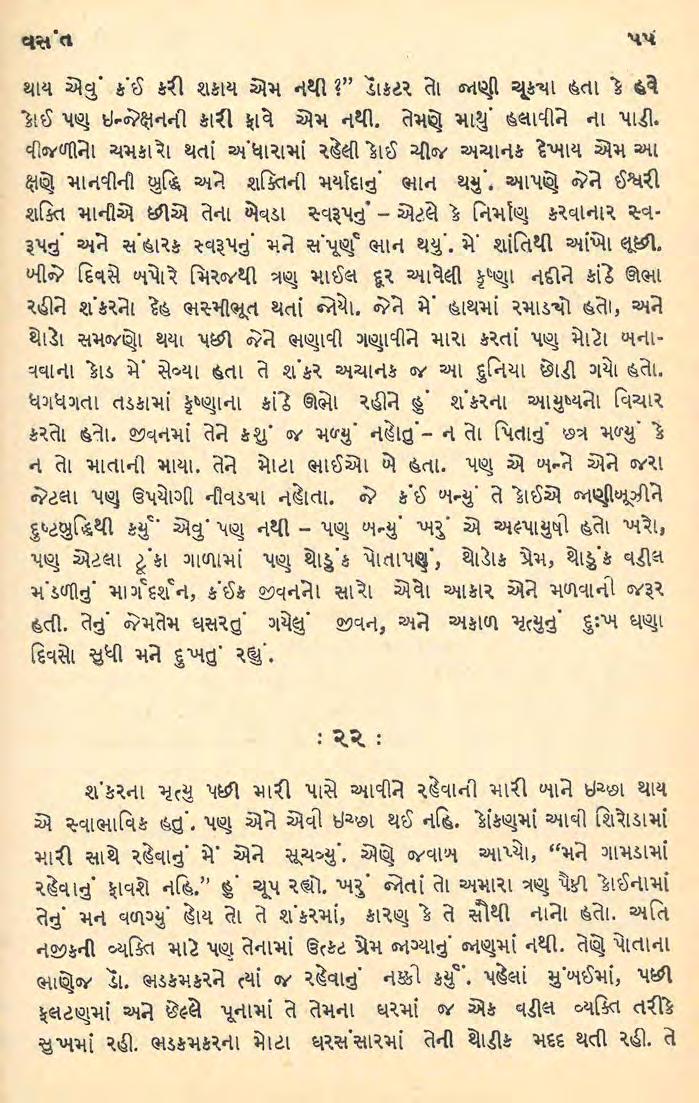 વસંત ૫૫
થાય એવું કંઈ કરી શકાય એમ નથી ?” ડૉકટર તો જાણી ચૂક્યા હતા કે હવે
કોઈ પણ ઇન્જેક્ષનની કારી ફાવે એમ નથી. તેમણે માથું હલાવીને ના પાડી.
વીજળીનો ચમકારો થતાં અંધારામાં રહેલી કોઈ ચીજ અચાનક દેખાય એમ આ
ક્ષણે માનવીની બુદ્ધિ અને શક્તિની મર્યાદાનું ભાન થયું. આપણે જેને ઈશ્વરી
શક્તિ માનીએ છીએ તેના બેવડા સ્વરૂપનું – એટલે કે નિર્માણ કરવાનાર સ્વ-
રૂપનું અને સંહારક સ્વરૂપનું મને સંપૂર્ણ ભાન થયું. મેં શાંતિથી આંખો લૂછી.
બીજે દિવસે બપોરે મિરજથી ત્રણ માઈલ દૂર આવેલી કૃષ્ણા નદીને કાંઠે ઊભા
રહીને શંકરનો દેહ ભસ્મીભૂત થતાં જોયો. જેને મેં હાથમાં રમાડ્યો હતો, અને
થોડો સમજણો થયા પછી જેને ભણાવી ગણાવીને મારા કરતાં પણ મોટો બના-
વવાના કોડ મેં સેવ્યા હતા તે શંકર અચાનક જ આ દુનિયા છોડી ગયો હતો.
ધગધગતા તડકામાં કૃષ્ણાના કાંઠે ઊભો રહીને હું શંકરના આયુષ્યનો વિચાર
કરતો હતો. જીવનમાં તેને કશું જ મળ્યું નહોતું – ન તો પિતાનું છત્ર મળ્યું કે
ન તો માતાની માયા. તેને મોટા ભાઈઓ બે હતા. પણ એ બન્ને એને જરા
જેટલા પણ ઉપયોગી નીવડ્યા નહોતા. જે કંઈ બન્યું તે કોઈએ જાણીબૂઝીને
દુષ્ટબુદ્ધિથી કર્યું એવું પણ નથી – પણ બન્યું ખરું એ અલ્પાયુષી હતો ખરો,
પણ એટલા ટૂંકા ગાળામાં પણ થોડુંક પોતાપણું, થોડોક પ્રેમ, થોડુંક વડીલ
મંડળીનું માર્ગદર્શન, કંઈક જીવનનો સારો એવો આકાર એને મળવાની જરૂર
હતી. તેનું જેમતેમ ઘસરતું ગયેલું જીવન, અને અકાળ મૃત્યુનું દુઃખ ઘણા
દિવસો સુધી મને દુખતું રહ્યું.
: ૨૨ :
શંકરના મૃત્યુ પછી મારી પાસે આવીને રહેવાની મારી બાને ઇચ્છા થાય
એ સ્વાભાવિક હતું. પણ એને એવી ઇચ્છા થઈ નહિ. કોંકણમાં આવી શિરોડામાં
મારી સાથે રહેવાનું મેં એને સૂચવ્યું. એણે જવાબ આપ્યો, “મને ગામડામાં
રહેવાનું ફાવશે નહિ.” હું ચૂપ રહ્યો. ખરું જોતાં તો અમારા ત્રણ પૈકી કોઈનામાં
તેનું મન વળગ્યું હોય તો તે શંકરમાં, કારણ કે તે સૌથી નાનો હતો. અતિ
નજીકની વ્યક્તિ માટે પણ તેનામાં ઉત્કટ પ્રેમ જાગ્યાનું જાણમાં નથી. તેણે પોતાના
ભાણેજ ડૉ. ભડકમકરને ત્યાં જ રહેવાનું નક્કી કર્યું. પહેલાં મુંબઈમાં, પછી
ફલટણમાં અને છેલ્લે પૂનામાં તે તેમના ઘરમાં જ એક વડીલ વ્યક્તિ તરીકે
સુખમાં રહી. ભડકમકરના મોટા ઘરસંસારમાં તેની થોડીક મદદ થતી રહી. તે